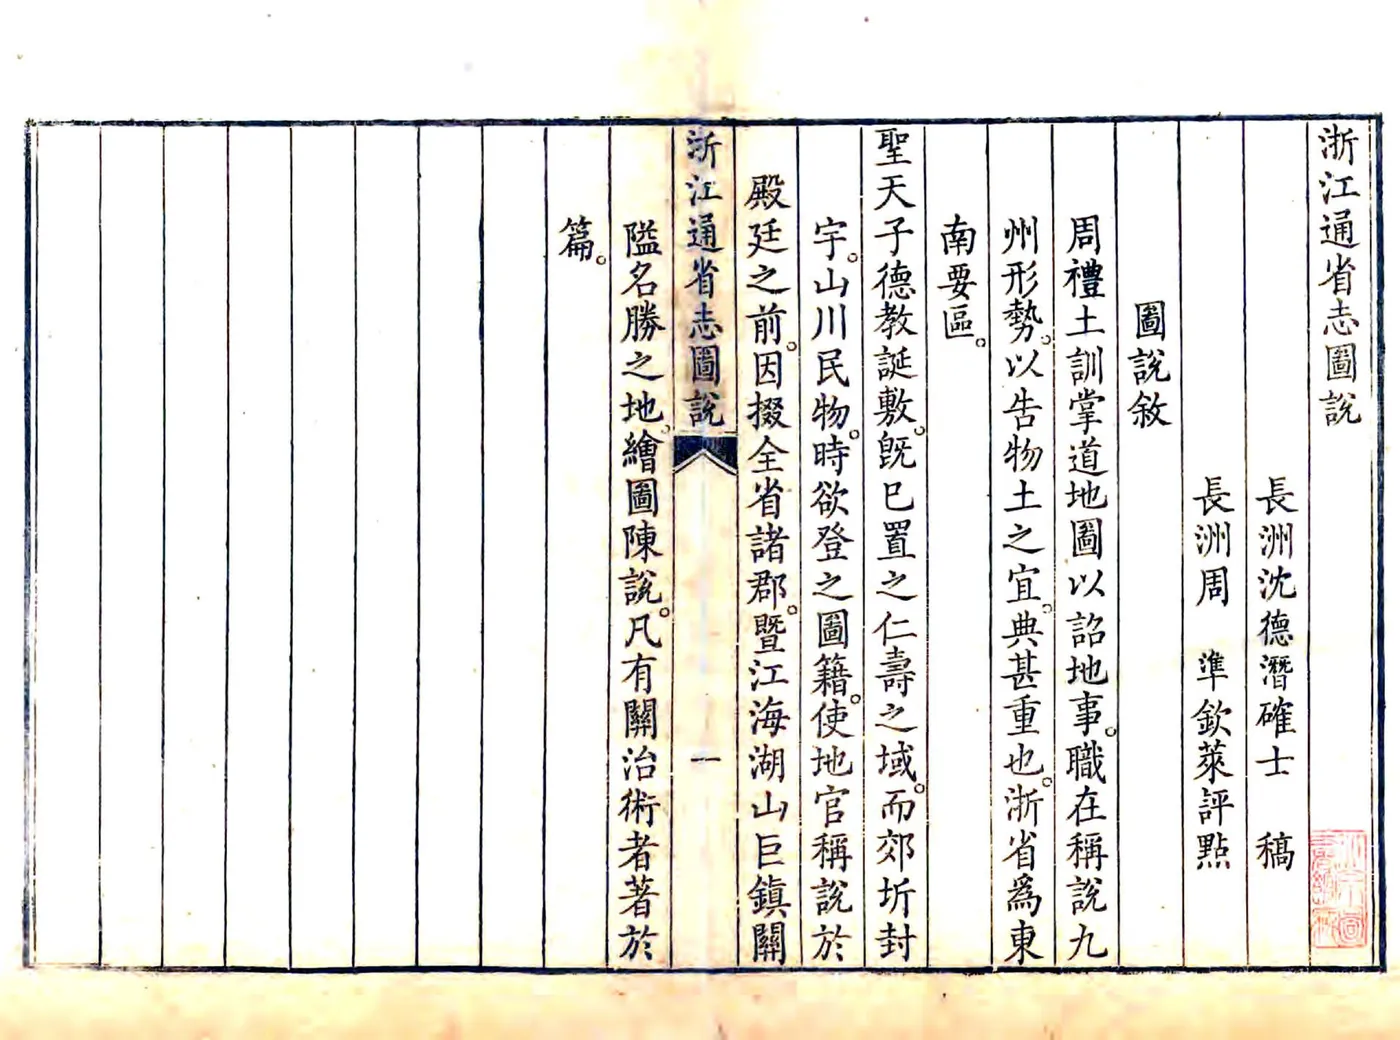 浙江通省志圖說
長洲沈德潛確士 稿
長洲周 準欽萊評點
圖說敘
周禮土訓掌道地圖以詔地事。職在稱說九
州形勢。以告物土之宜。典甚重也。浙省爲東
南要區。
聖天子德教誕敷。旣已置之仁壽之域。而郊圻封
宇。山川民物。時欲登之圖籍。使地官稱說於
殿廷之前。因掇全省諸郡。暨江海湖山巨鎮關
浙江通省志圖說
一
隘名勝之地。繪圖陳說。凡有關治術者著於
篇。